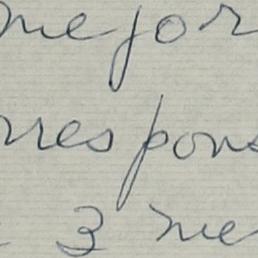 mejor
rrespons
3 me